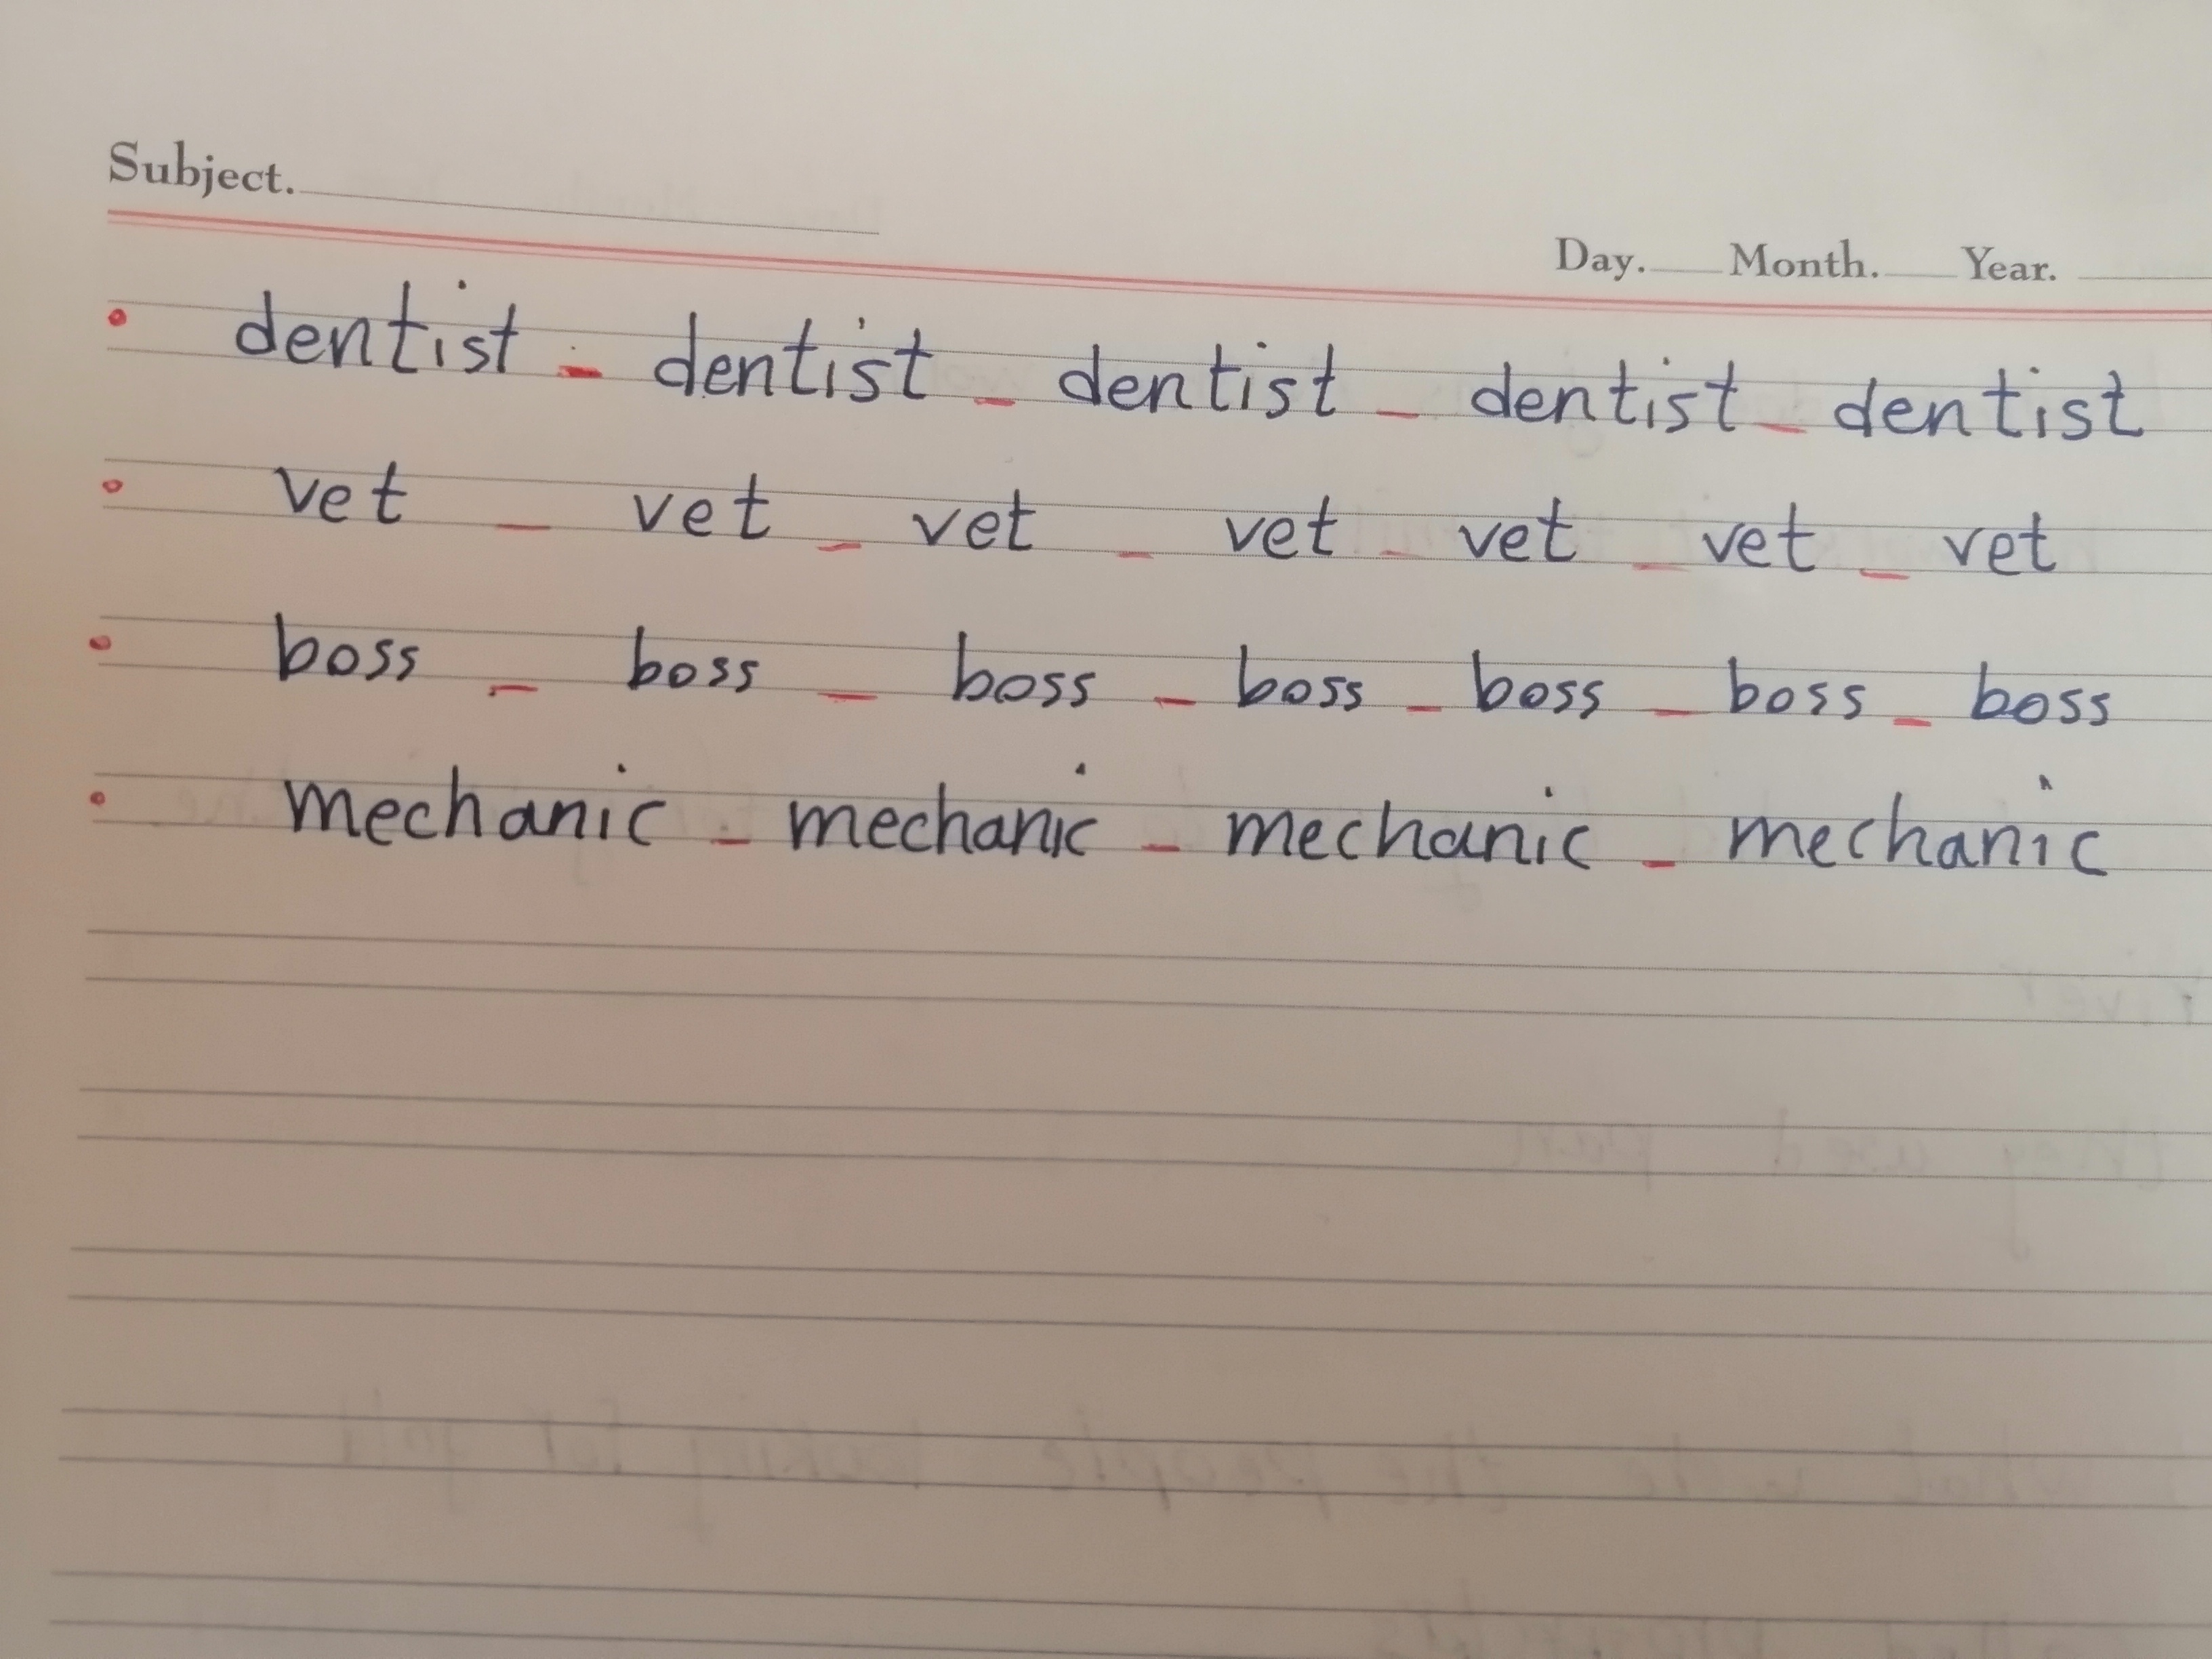 Subject.
Day. Month. Year.
• dentist - dentist - dentist - dentist - dentist
• vet - vet - vet - vet - vet - vet - vet
• boss - boss - boss - boss - boss - boss - boss
• mechanic - mechanic - mechanic - mechanic